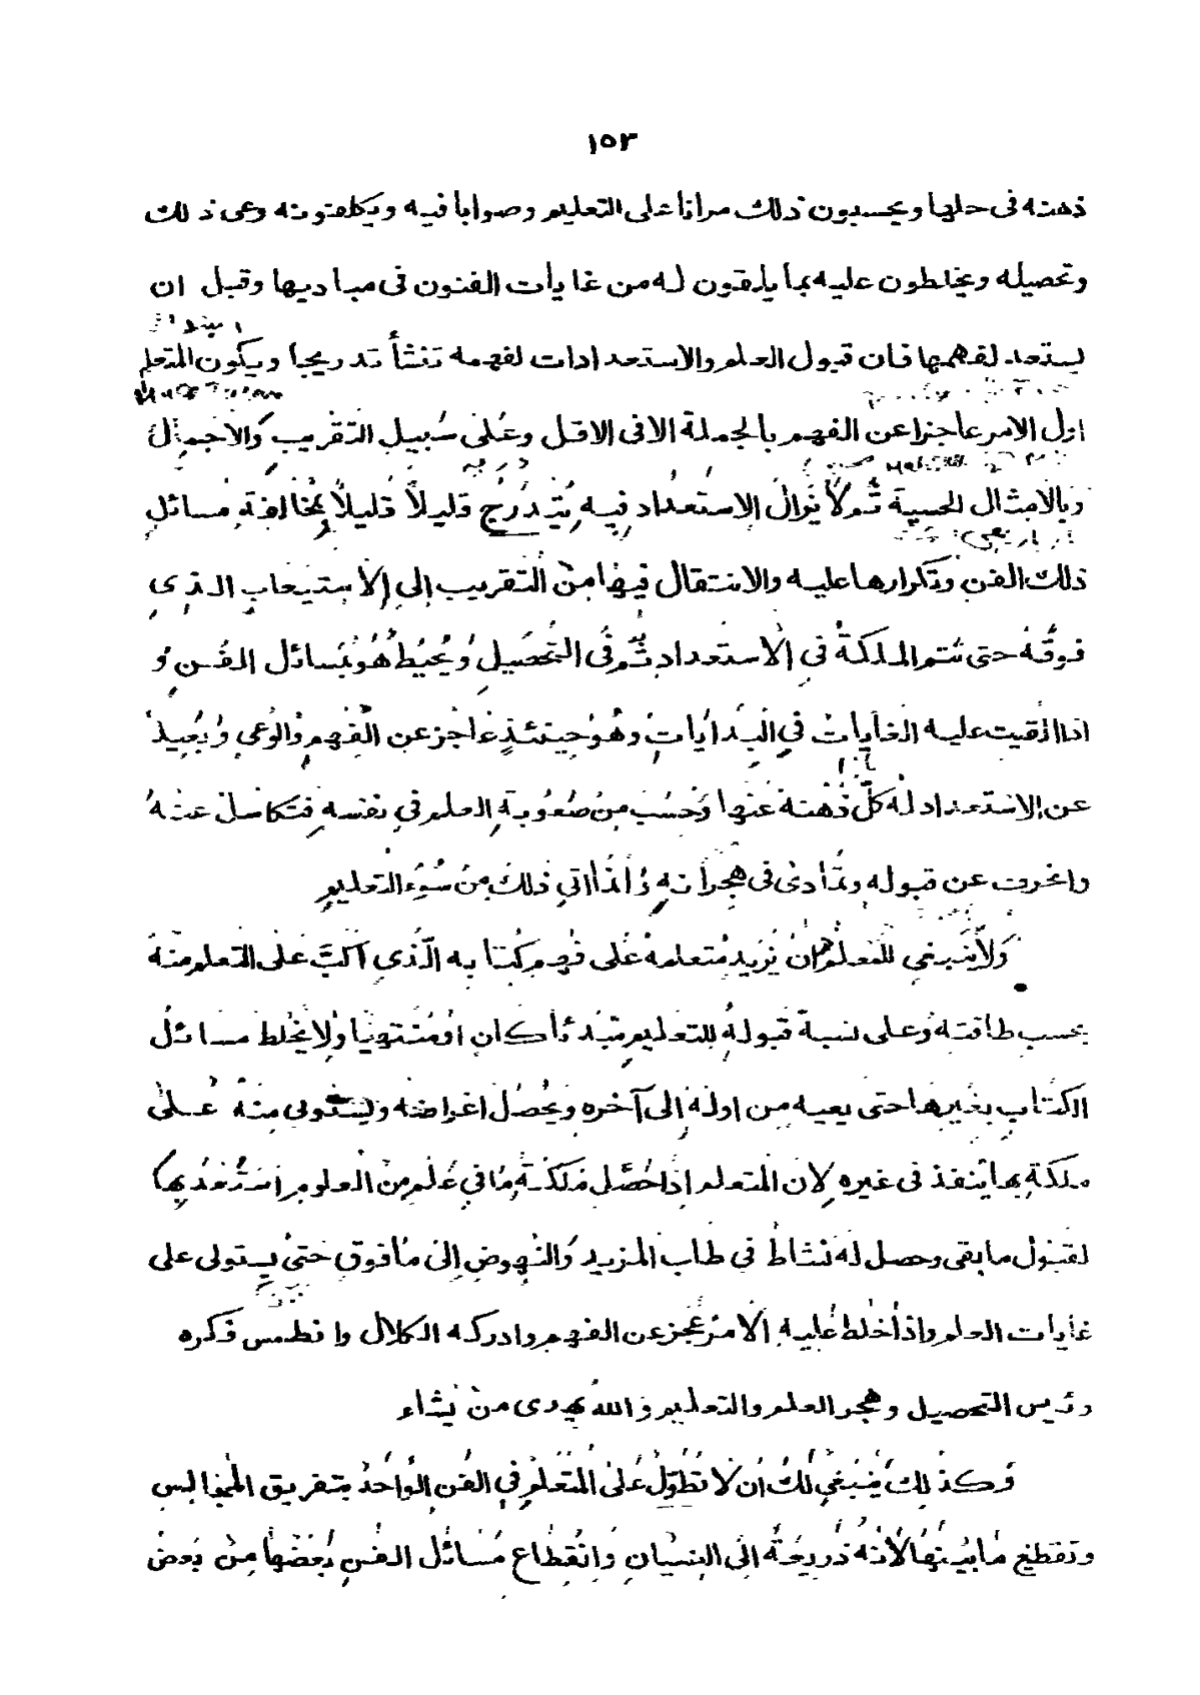 ١٥٣
ذهنه فى حلها ويحسبون ذلك مرانا على التعليم وصوابا فيه ويكلفونه وعى ذلك
وتحصيله ويخلطون عليه بما يلقون له من غايات الفنون فى مباديها وقبل ان
يستعد لفهمها فان قبول العلم والاستعدادات لفهمه تنشأ تدريجا ويكون المتعلم
اول الامر عاجزا عن الفهم بالجملة الا فى الاقل وعلى سبيل التقريب والاجمال
وبالامثال الحسية ثم لا يزال الاستعداد فيه يتدرج قليلاً قليلاً بمخالفة مسائل
ذلك الفن وتكرارها عليه والانتقال فيها من التقريب إلى الاستيعاب الذى
فوقه حتى تتم الملكة في الاستعداد ثم في التحصيل ويحيط هو بمسائل الفن و
اذا القيت عليه الغايات في البدايات وهو حينئذٍ عاجز عن الفهم والوعي وبعيد
عن الاستعداد له كلّ ذهنه عنها وحسب من صعوبة العلم في نفسه فتكاسل عنه
وانحرف عن قبوله وتمادى فى هجرانه وانما اتى ذلك من سوء التعليم
ولا ينبغي للمعلم ان يزيد متعلمه على فهم كتابه الّذي اكبّ على التعلم منه
بحسب طاقته وعلى نسبة قبوله للتعليم مبتدئا كان او منتهيا ولا يخلط مسائل
الكتاب بغيرها حتى يعيه من اوله إلى آخره ويحصل اغراضه ويستولى منه على
ملكة بها ينفذ فى غيره لان المتعلم اذا حصّل ملكة ما في علم من العلوم استعد بها
لقبول ما بقى وحصل له نشاط في طلب المزيد والنهوض إلى ما فوق حتى يستولى على
غايات العلم واذا خلط عليه الامر عجز عن الفهم وادركه الكلال وانطمس فكره
ويئس من التحصيل وهجر العلم والتعليم والله يهدى من يشاء
وكذلك ينبغي لك ان لا تطول على المتعلم في الفن الواحد بتفريق المجالس
وتقطيع ما بينها لانه ذريعة الى النسيان وانقطاع مسائل الفن بعضها من بعض